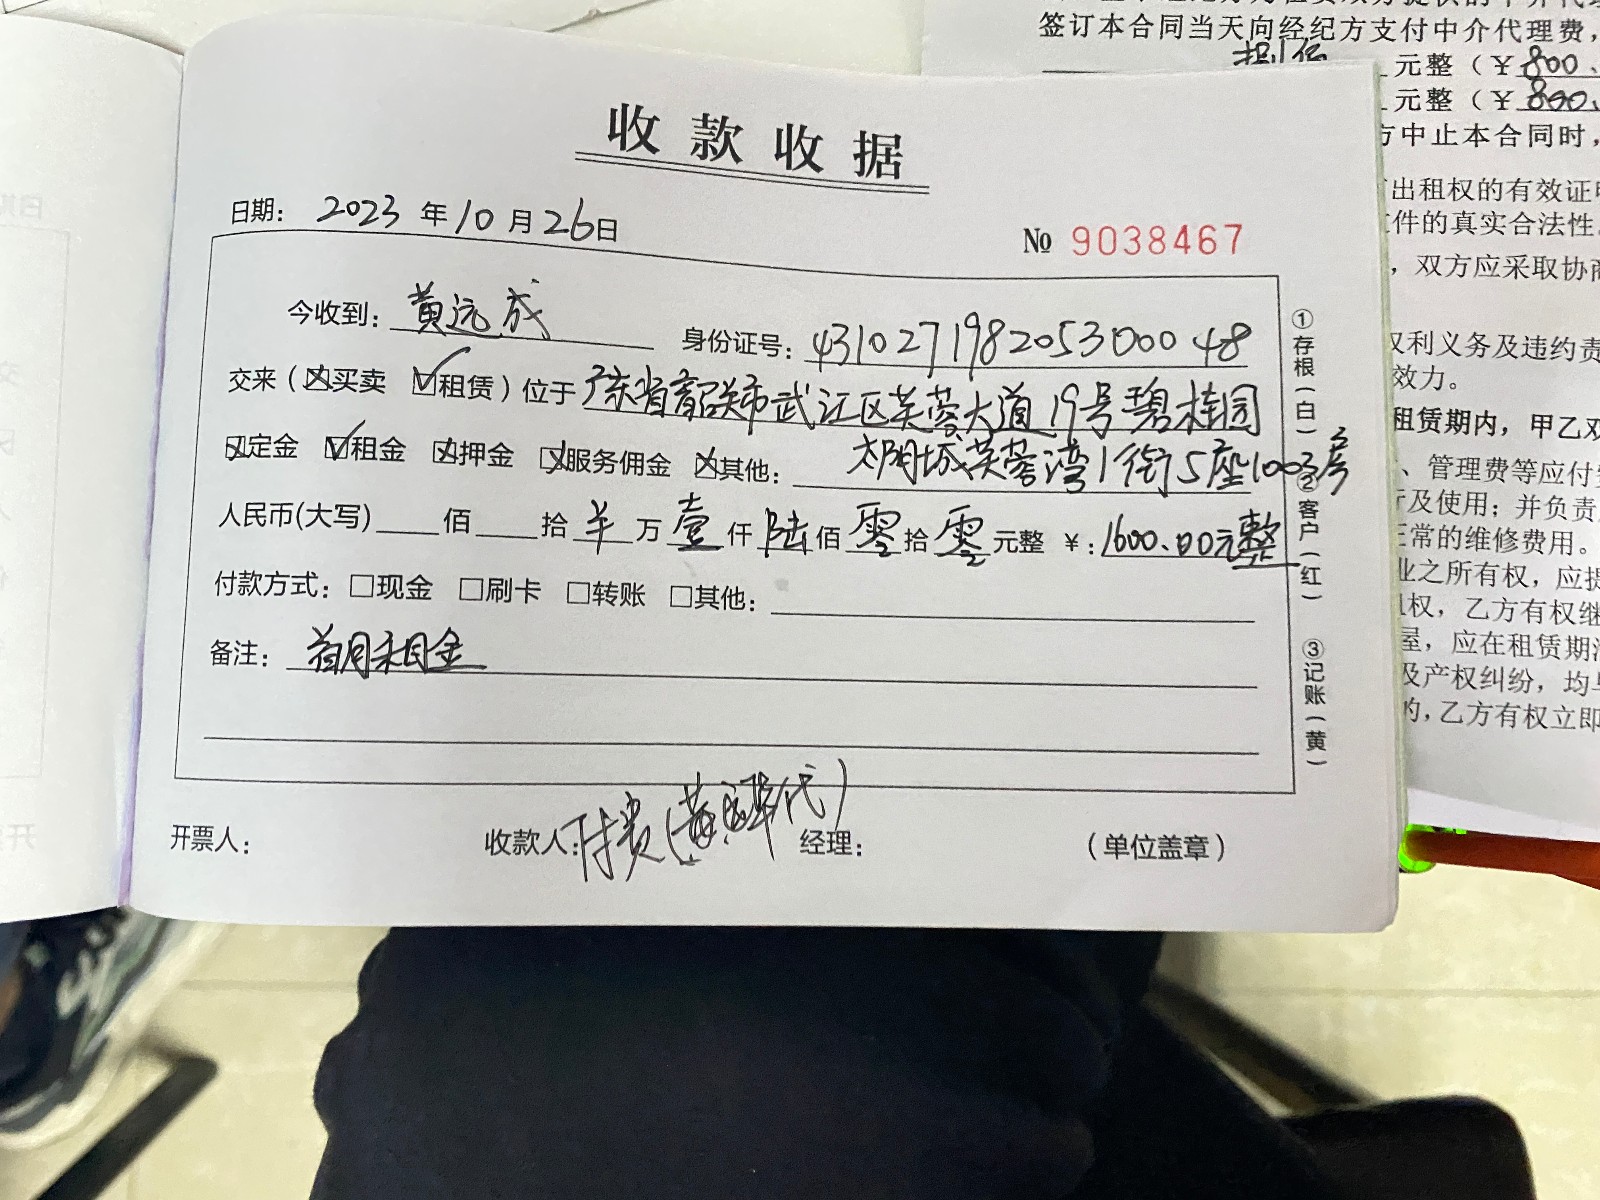 收款收据
日期: 2023 年 10 月 26 日
№ 9038467
今收到: 黄远成 身份证号: 431027198205300048
交来(☒买卖 ☑租赁)位于 广东省韶关市武江区芙蓉大道19号碧桂园
☒定金 ☑租金 ☒押金 ☒服务佣金 ☒其他: 太阳城芙蓉湾1街5座1003房
人民币(大写) 佰 拾 万 壹 仟 陆 佰 零 拾 零 元整 ¥: 1600.00元整
付款方式: □现金 □刷卡 □转账 □其他:
备注: 首月租金
开票人: 收款人: 经理: (单位盖章)
①存根(白) ②客户(红) ③记账(黄)
签订本合同当天向经纪方支付中介代理费,
捌佰 元整(¥800.
元整(¥800.
方中止本合同时,
出租权的有效证
件的真实合法性
,双方应采取协商
权利义务及违约责
效力。
租赁期内,甲乙双
、管理费等应付
及使用;并负责
正常的维修费用。
业之所有权,应提
权,乙方有权继
屋,应在租赁期
及产权纠纷,均
的,乙方有权立即